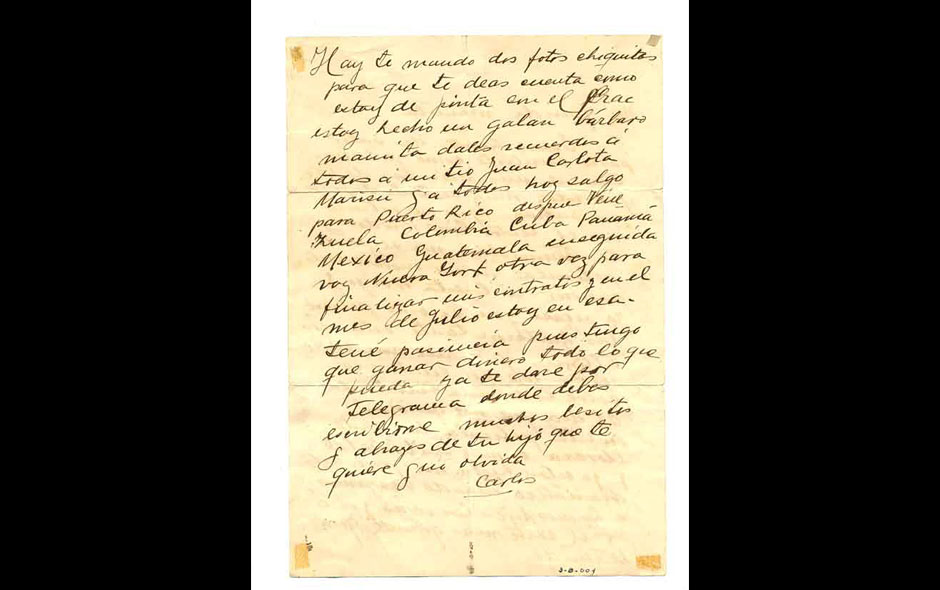 Hay te mando dos fotos chiquitas
para que te deas cuenta como
estoy de pinta con el Frac
estoy hecho un galan bárbaro
mamita dales recuerdos á
todos á mi tio Juan Carlota
Marisú y a todos hoy salgo
para Puerto Rico despue Vene
Zuela Colombia Cuba Panamá
Mexico Guatemala enseguida
voy Nueva York otra vez para
finalizar mis contratos y en el
mes de Julio estoy en esa-
tené pasincia pues tengo
que ganar dinero todo lo que
pueda ya te dare por
Telegrama donde debes
escribirme muchos besitos
y abrazos de tu hijo que te
quiere y no olvida
Carlos
3-8-009